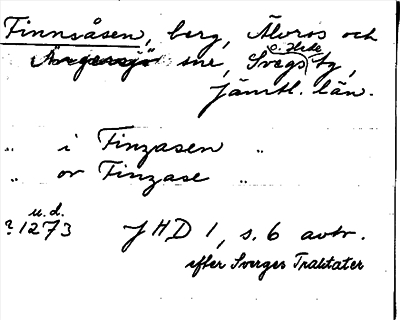 Finnsåsen, berg, Älvros och
Ängersjö snr, Svegs tg,
Jämtl. län.
" i Finzasen "
" or Finzase "
u.d.
? 1273 JHD 1, s. 6 avtr.
efter Sverges Traktater